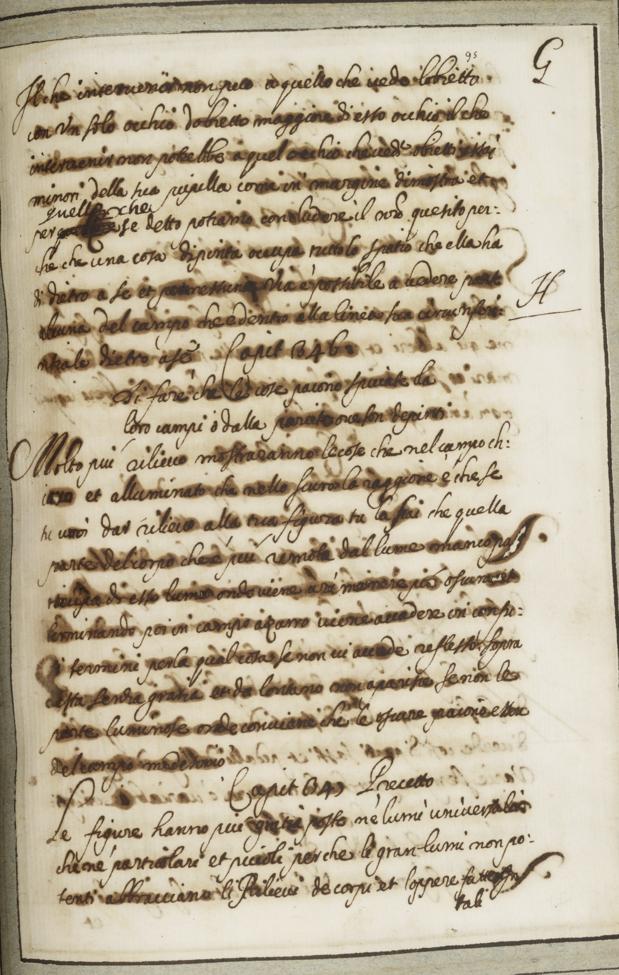 95
G
Il che intervenir non può a quello che vede l'obietto
con Un solo occhio d'obietto maggiore di esso occhio il che
intervenir non potrebbe a quel occhio che vede obietti assai
minori della sua pupilla come in margine dimostra et
quello che
per se detto potiamo concludere il nro quesito per:
che che una cosa dipinta occupa tutto lo spatio che ella ha
di dietro a se et è possibile a vedere parte
H
alcuna del campo che e dentro alla linea sua circonferen:
ntiale dietro a se Capit 346
Di fare che le cose paiono spiccate da
loro campi o dalla pariete ove son depinti
Molto più rilievo mostraranno le cose che nel campo ch:
iaro et alluminato che nello scuro la raggione è che se
tu vuoi dar rilievo alla tua figura tu la fai che quella
parte del corpo che è più remota dal lume manco
di esso lume onde viene a rimanere più oscura et
terminando poi in campo viene a cadere in confu:
si termini per la qual cosa se non vi accade reflesso l'opra
resta senza gratia et da lontano non aparisce se non le
parte luminose onde conviene che le oscure paiono esser
del campo medesimo
Capit Precetto
Le figure hanno più gratia poste ne lumi universali
che ne particolari et piccioli perche li gran lumi non po:
tenti abbracciano li Rilievi de corpi et l'oppere fatte in
tali